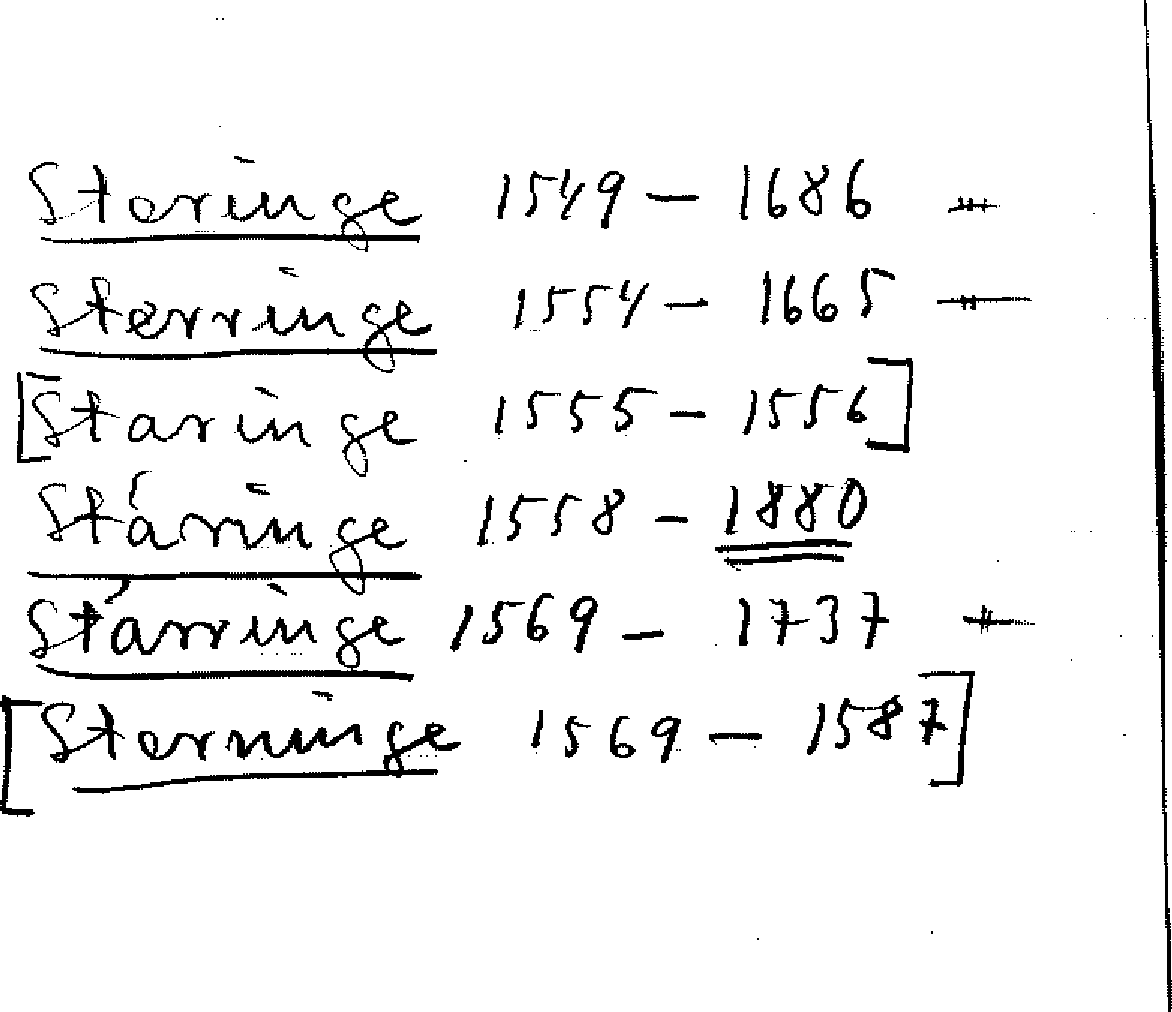 Steringe 1549 – 1686
Sterringe 1554 – 1665
[Staringe 1555 – 1556]
Stäringe 1558 – 1880
Stärringe 1569 – 1737
[Sterninge 1569 – 1587]